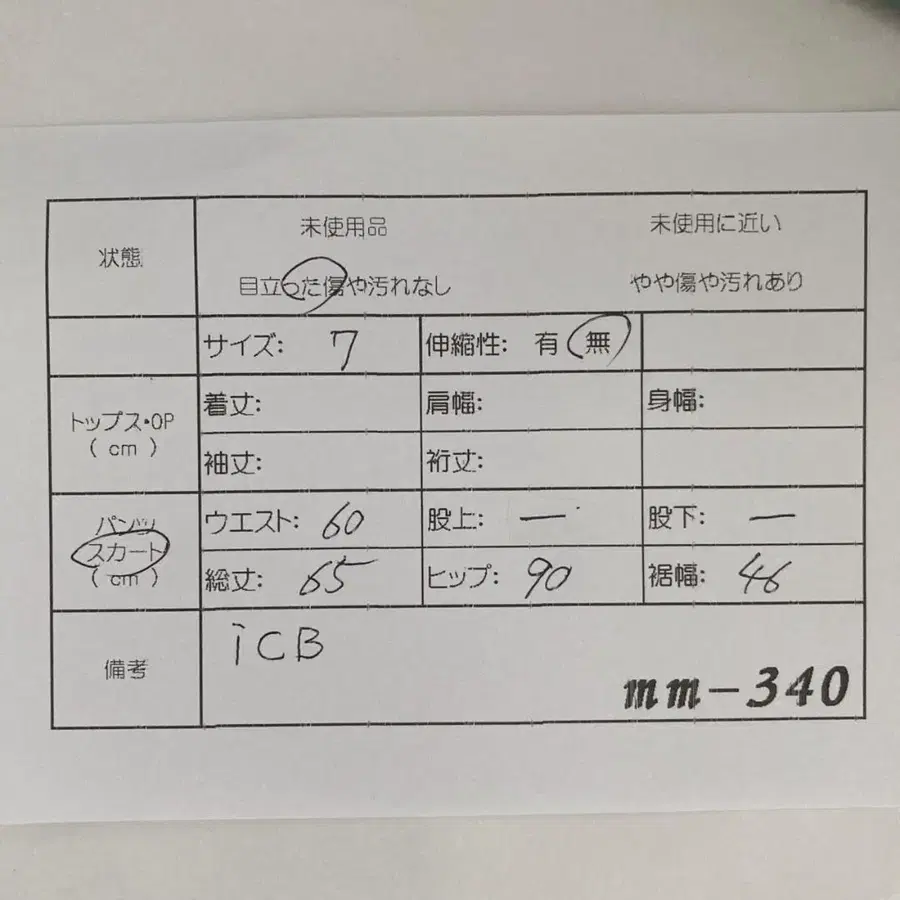 状態
未使用品 未使用に近い
目立った傷や汚れなし やや傷や汚れあり
サイズ: 7 伸縮性: 有 無
トップス・OP
( cm )
着丈: 肩幅: 身幅:
袖丈: 裄丈:
パンツ
スカート
( cm )
ウエスト: 60 股上: ー 股下: ー
総丈: 65 ヒップ: 90 裾幅: 46
備考
iCB
mm-340